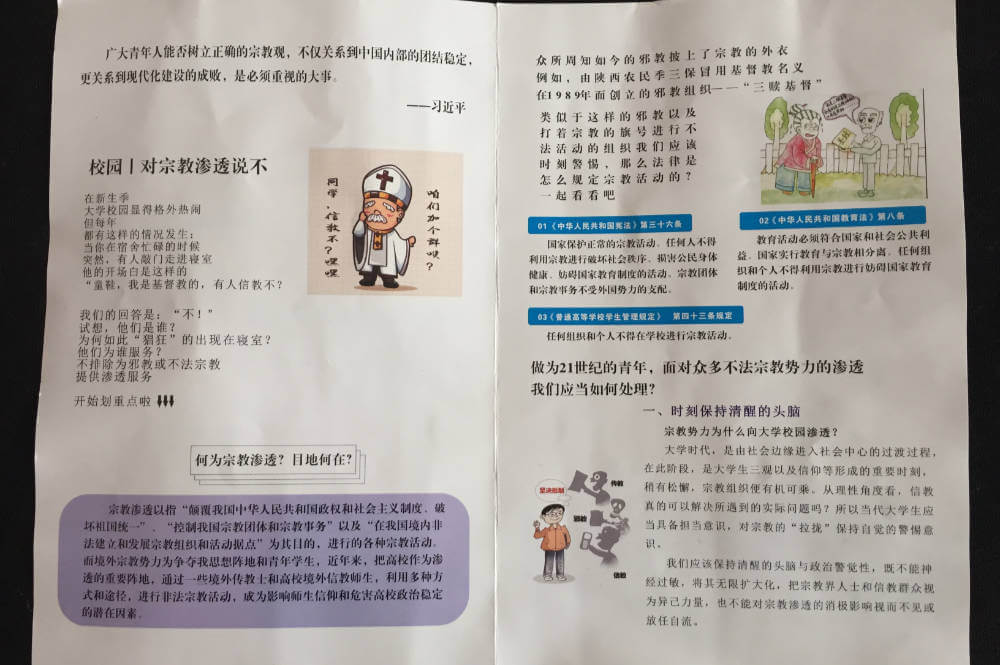 广大青年人能否树立正确的宗教观，不仅关系到中国内部的团结稳定，
更关系到现代化建设的成败，是必须重视的大事。
——习近平
校园丨对宗教渗透说不
在新生季
大学校园显得格外热闹
但每年
都有这样的情况发生：
当你在宿舍忙碌的时候
突然，有人敲门走进寝室
他的开场白是这样的
“童鞋，我是基督教的，有人信教不？
我们的回答是：“不！”
试想，他们是谁？
为何如此“猖狂”的出现在寝室？
他们为谁服务？
不排除为邪教或不法宗教
提供渗透服务
开始划重点啦
同学，信教不？嘿嘿
咱们加个群呗？
何为宗教渗透？目地何在？
宗教渗透以指“颠覆我国中华人民共和国政权和社会主义制度、破
坏祖国统一”、“控制我国宗教团体和宗教事务”以及“在我国境内非
法建立和发展宗教组织和活动据点”为其目的，进行的各种宗教活动。
而境外宗教势力为争夺我思想阵地和青年学生，近年来，把高校作为渗
透的重要阵地，通过一些境外传教士和高校境外信教师生，利用多种方
式和途径，进行非法宗教活动，成为影响师生信仰和危害高校政治稳定
的潜在因素。
众所周知如今的邪教披上了宗教的外衣
例如，由陕西农民季三保冒用基督教名义
在1989年而创立的邪教组织——“三赎基督”
类似于这样的邪教以及
打着宗教的旗号进行不
法活动的组织我们应该
时刻警惕，那么法律是
怎么规定宗教活动的？
一起看看吧
01《中华人民共和国宪法》第三十六条
国家保护正常的宗教活动。任何人不得
利用宗教进行破坏社会秩序、损害公民身体
健康、妨碍国家教育制度的活动。宗教团体
和宗教事务不受外国势力的支配。
02《中华人民共和国教育法》第八条
教育活动必须符合国家和社会公共利
益。国家实行教育与宗教相分离。任何组
织和个人不得利用宗教进行妨碍国家教育
制度的活动。
03《普通高等学校学生管理规定》 第四十三条规定
任何组织和个人不得在学校进行宗教活动。
做为21世纪的青年，面对众多不法宗教势力的渗透
我们应当如何处理？
一、时刻保持清醒的头脑
宗教势力为什么向大学校园渗透？
大学时代，是由社会边缘进入社会中心的过渡过程，
在此阶段，是大学生三观以及信仰等形成的重要时刻，
稍有松懈，宗教组织便有机可乘。从理性角度看，信教
真的可以解决所遇到的实际问题吗？所以当代大学生应
当具备担当意识，对宗教的“拉拢”保持自觉的警惕意
识。
我们应该保持清醒的头脑与政治警觉性，既不能神
经过敏，将其无限扩大化，把宗教界人士和信教群众视
为异己力量，也不能对宗教渗透的消极影响视而不见或
放任自流。
坚决抵制
传教
邪教
信教